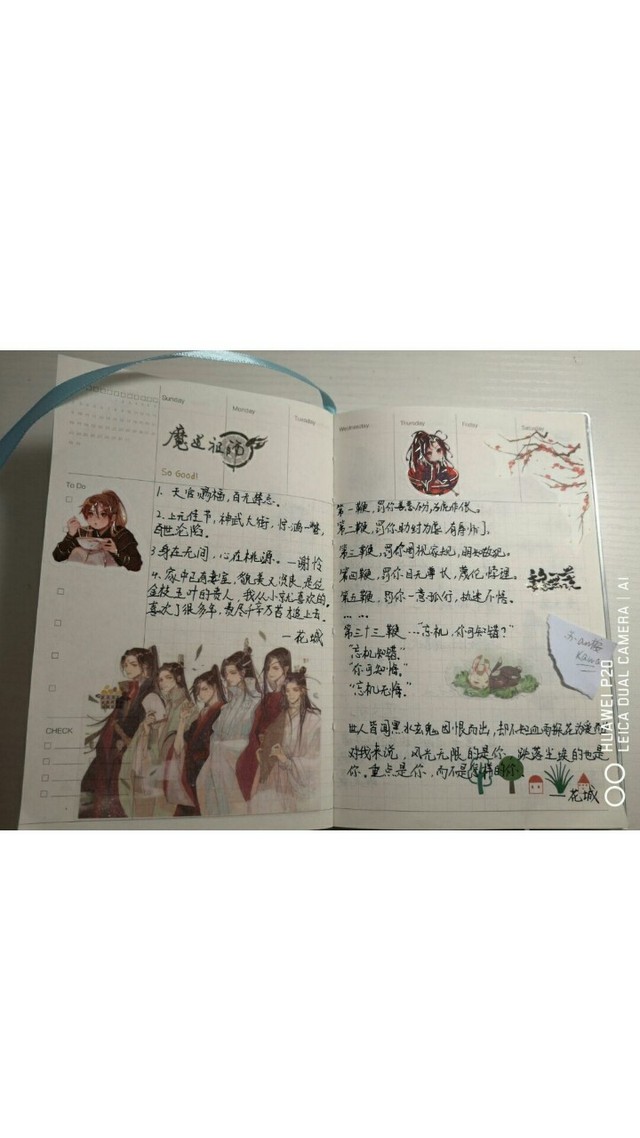 Sunday
Monday
Tuesday
魔道祖师
So Good!
To Do
1. 天官赐福，百无禁忌。
2. 上元佳节，神武大街，惊鸿一瞥，
百世沦陷。
3 身在无间，心在桃源。—谢怜
4、家中已有妻室，貌美又贤良，是位
金枝玉叶的贵人，我从小就喜欢的。
喜欢了很多年，费尽千辛万苦才追上去。
—花城
CHECK
Wednesday
Thursday
Friday
Saturday
第一鞭，罚你善恶不分，
第二鞭，罚你助纣为虐，有辱师门。
第三鞭，罚你罔视家规，明知故犯。
第四鞭，罚你目无尊长，荒伦悖理。
第五鞭，罚你一意孤行，执迷不悟。
… …
第三十三鞭 …“忘机，你可知错？”
“忘机知错。”
“你可知悔。”
“忘机无悔。”
世人皆闻黑水玄鬼因恨而出，却不知血雨探花为爱而
对我来说，风光无限的是你，跌落尘埃的也是
你。重点是你，而不是怎样的你
—花城
HUAWEI P20
LEICA DUAL CAMERA | AI